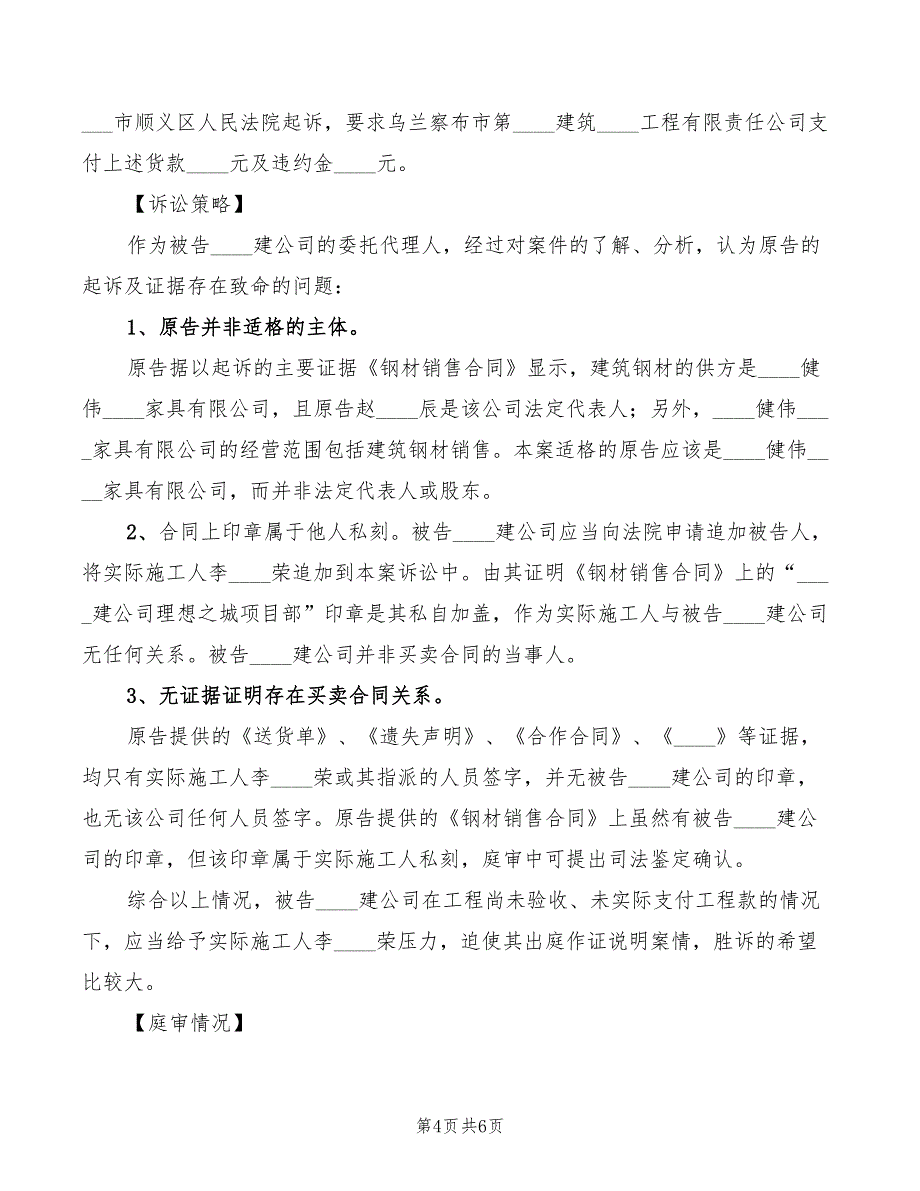 ___市顺义区人民法院起诉，要求乌兰察布市第____建筑____工程有限责任公司支
付上述货款____元及违约金____元。
【诉讼策略】
作为被告____建公司的委托代理人，经过对案件的了解、分析，认为原告的
起诉及证据存在致命的问题：
1、原告并非适格的主体。
原告据以起诉的主要证据《钢材销售合同》显示，建筑钢材的供方是____健
伟____家具有限公司，且原告赵____辰是该公司法定代表人；另外，____健伟___
_家具有限公司的经营范围包括建筑钢材销售。本案适格的原告应该是____健伟__
__家具有限公司，而并非法定代表人或股东。
2、合同上印章属于他人私刻。被告____建公司应当向法院申请追加被告人，
将实际施工人李____荣追加到本案诉讼中。由其证明《钢材销售合同》上的“___
_建公司理想之城项目部”印章是其私自加盖，作为实际施工人与被告____建公司
无任何关系。被告____建公司并非买卖合同的当事人。
3、无证据证明存在买卖合同关系。
原告提供的《送货单》、《遗失声明》、《合作合同》、《____》等证据，
均只有实际施工人李____荣或其指派的人员签字，并无被告____建公司的印章，
也无该公司任何人员签字。原告提供的《钢材销售合同》上虽然有被告____建公
司的印章，但该印章属于实际施工人私刻，庭审中可提出司法鉴定确认。
综合以上情况，被告____建公司在工程尚未验收、未实际支付工程款的情况
下，应当给予实际施工人李____荣压力，迫使其出庭作证说明案情，胜诉的希望
比较大。
【庭审情况】
第4页共6页